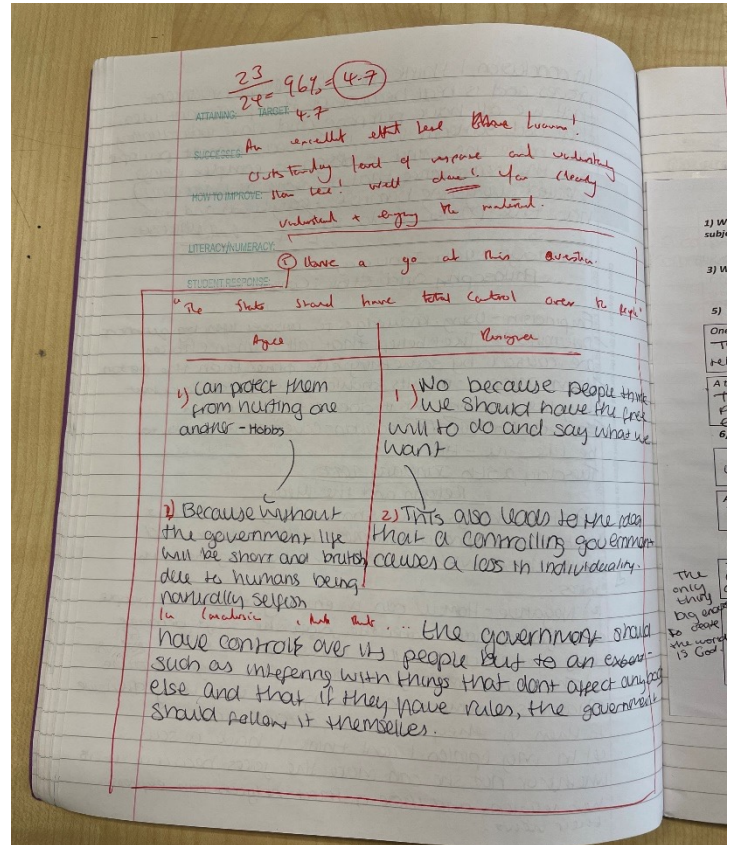 23
24 = 96% = 4.7
ATTAINING: TARGET: 4.7
SUCCESSES: An excellent effort here
Outstanding level of response and understanding
HOW TO IMPROVE: shown here! Well done! You clearly
understand + enjoy the material.
LITERACY/NUMERACY:
Have a go at this question.
STUDENT RESPONSE:
"The State should have total control over the people"
Agree
Disagree
1) can protect them
from hurting one
another - Hobbs
1) No because people think
we should have the free
will to do and say what we
want
2) Because without
the government life
will be short and brutish
due to humans being
naturally selfish
2) This also leads to the idea
that a controlling government
causes a loss in individuality.
In conclusion, ... the government should
have control over its people but to an extent
such as intefering with things that dont affect anybody
else and that if they have rules, the government
should follow it themselves.
1) W
subje
3) W
5)
One
rel
6,
The
only
thing
big enough
to create
the world
is God.